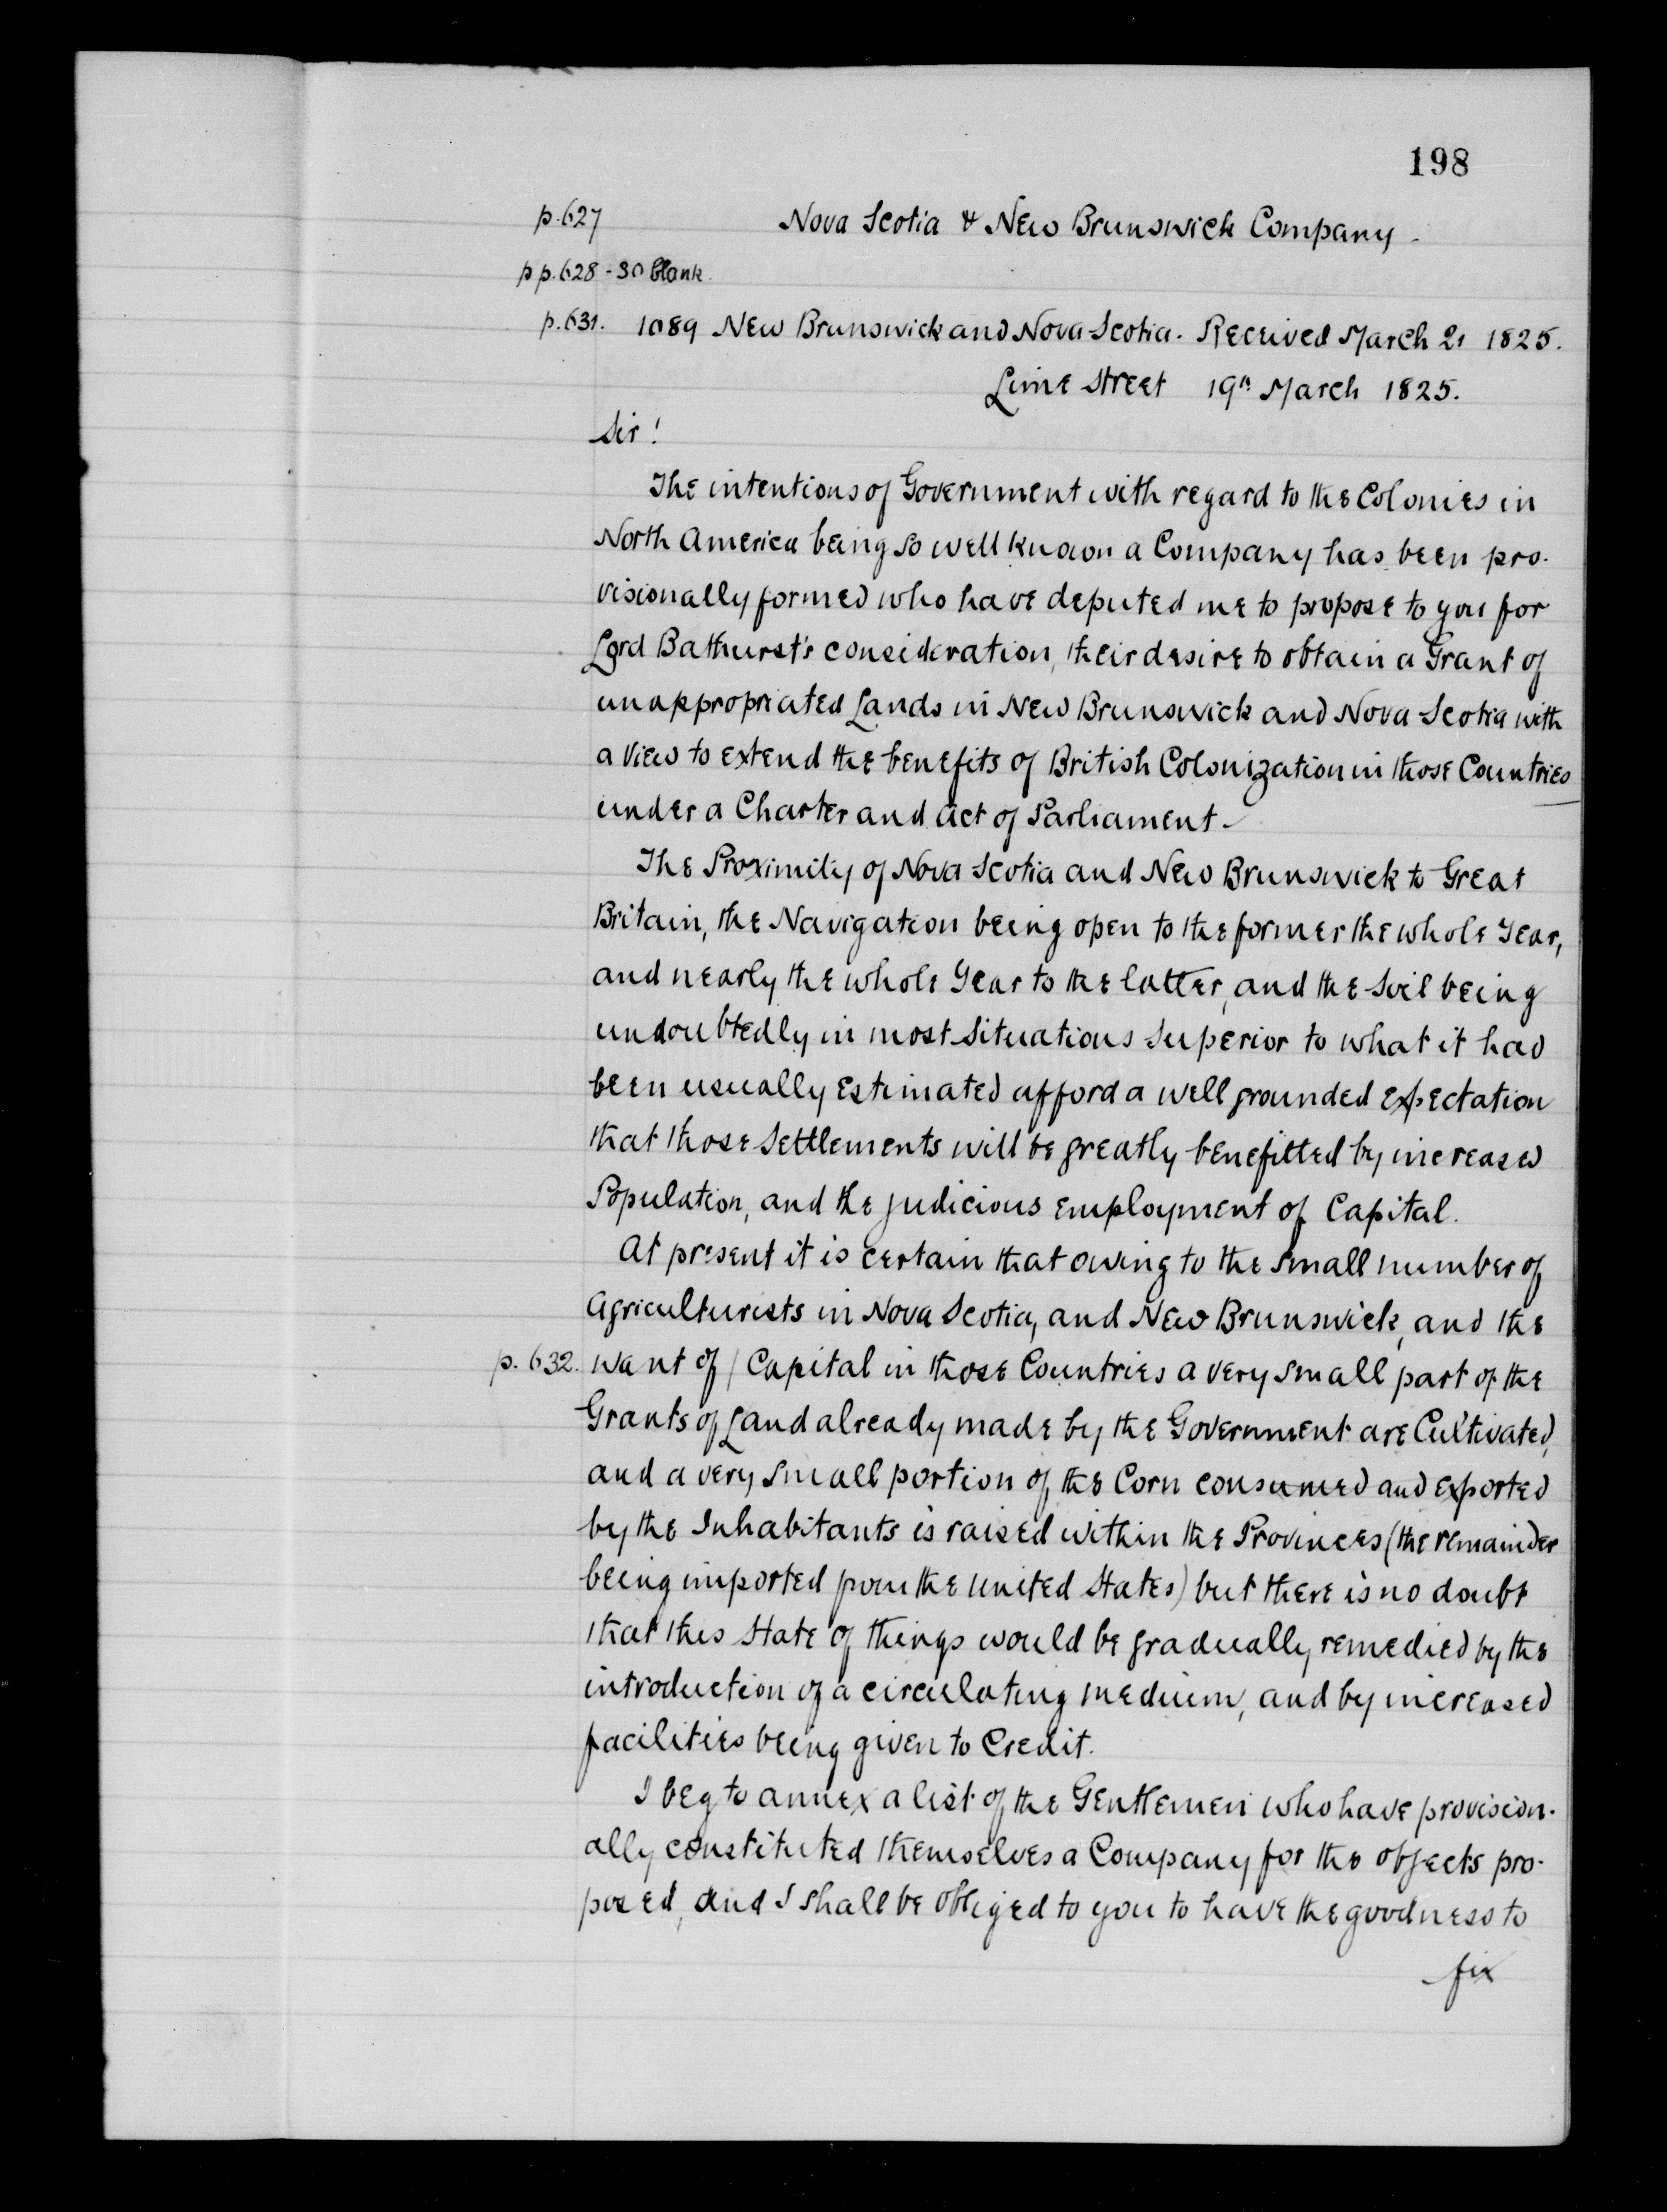 198
p.627 Nova Scotia & New Brunswick Company.
pp.628-30 blank.
p.631. 1089 New Brunswick and Nova Scotia. Received March 21 1825.
Lime Street 19th March 1825.
Sir!
The intentions of Government with regard to the Colonies in
North America being so well known a Company has been pro-
visionally formed who have deputed me to propose to you for
Lord Bathurst's consideration, their desire to obtain a Grant of
unappropriated Lands in New Brunswick and Nova Scotia with
a view to extend the benefits of British Colonization in those Countries
under a Charter and Act of Parliament.
The Proximity of Nova Scotia and New Brunswick to Great
Britain, the Navigation being open to the former the whole Year,
and nearly the whole Year to the latter, and the Soil being
undoubtedly in most Situations Superior to what it had
been usually Estimated afford a well grounded Expectation
that those Settlements will be greatly benefitted by increased
Population, and the judicious Employment of Capital.
At present it is certain that owing to the Small number of
Agriculturists in Nova Scotia, and New Brunswick, and the
p. 632. want of / Capital in those Countries a very small part of the
Grants of Land already made by the Government are Cultivated,
and a very small portion of the Corn consumed and exported
by the Inhabitants is raised within the Provinces (the remainder
being imported from the United States) but there is no doubt
that this State of things would be gradually remedied by the
introduction of a circulating medium, and by increased
facilities being given to Credit.
I beg to annex a list of the Gentlemen who have provision-
ally constituted themselves a Company for the objects pro-
posed, and I shall be obliged to you to have the goodness to
fix